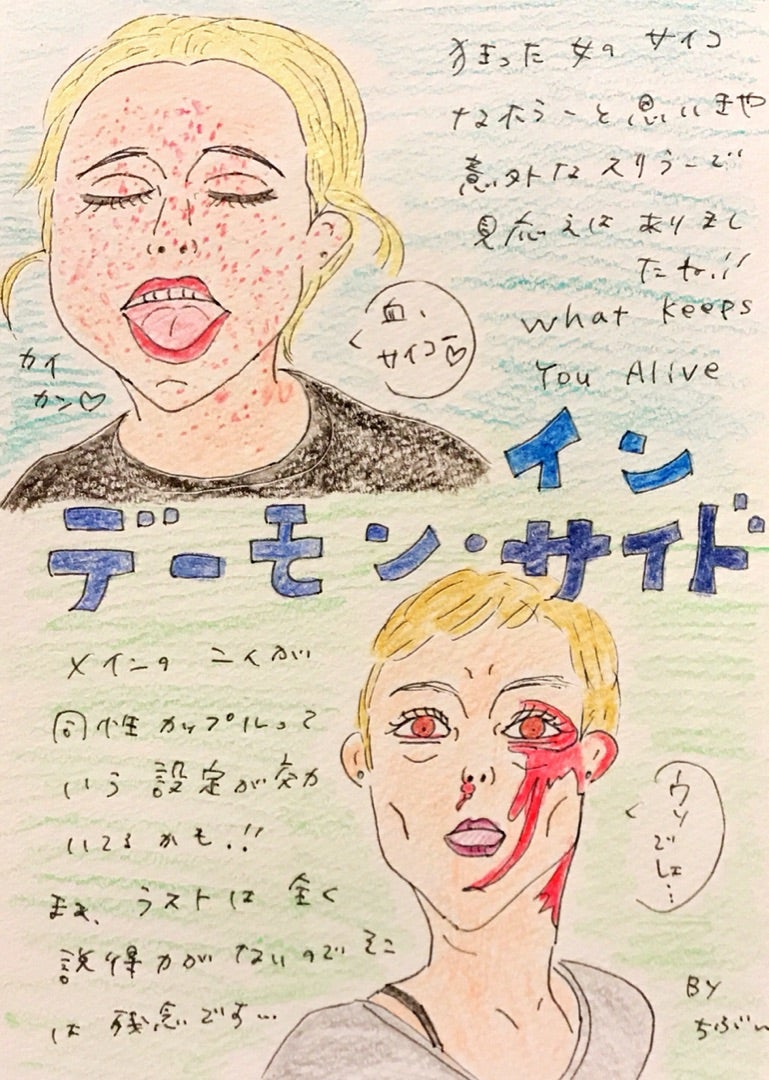 狂った女のサイコ
なホラーと思いきや
意外なスリラーで
見応えはありまし
たな!!
What Keeps
You Alive
血、
サイコー♡
カイ
カン♡
イン
デーモン・サイド
メインの二人が
同性カップルって
いう設定が効力
いてるかも!!
まぁ、ラストは全く
説得力がないのでそこ
は残念です…
ウソ
でしょ…
BY
ちぶー